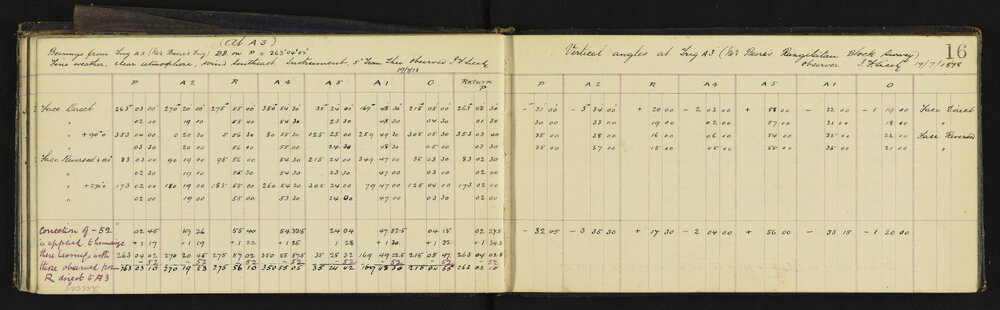 (At A3)
Bearings from Trig A3 (Mr Beere's Trig) BB on P = 263° 04' 02"
Fine weather, clear atmosphere, wind Southeast. Instrument 5" Tran. Theo
19/7/18
P A2 R A4 A5 A1 O Return P
Face Direct 263 03 00 270 20 00 275 55 40 350 54 30 35 24 00 169 48 30 215 05 00 263 02 30
" 02 00 19 00 55 40 54 30 23 30 48 30 04 30 01 30
" +90° 353 04 00 0 20 30 5 56 30 80 55 30 125 25 00 259 49 30 305 05 30 353 03 40
" 03 30 20 00 56 00 55 00 24 30 48 30 05 00 03 00
Face Reversed 83 03 00 90 19 00 95 56 00 54 30 215 24 00 349 47 00 35 03 30 83 02 30
" 02 30 19 00 55 30 54 30 23 30 47 00 03 00 02 00
" +270° 173 02 00 180 19 00 185 55 00 260 54 20 305 24 00 79 47 00 125 04 00 173 02 00
" 02 00 19 00 55 00 53 30 24 00 47 00 03 30 02 00
Correction of -52" 02 45 19 26 55 40 54 32.5 24 04 47 52.5 04 15 02 27.5
is applied to +1 17 +1 19 +1 22 +1 25 1 28 +1 30 +1 32 +1 34.5
these bearings with 263 04 02 270 20 45 275 57 02 350 55 57.5 35 25 32 169 49 22.5 215 05 47 263 04 02
those observed from -52 -52 -52 -52 -52 -52 -52 -52
R direct to A3 263 03 10 270 19 53 275 56 10 350 55 05 35 24 42 169 48 30 215 04 55 263 03 10
Error
Vertical angles at Trig A3 (Mr Beere's Rangitatau Block Survey)
16
Observer 19/7/1898
P A2 R A4 A5 A1 O
- 31 00 - 3 34 00 + 20 00 - 2 03 00 + 58 00 - 32 00 - 1 19 00 Face Direct
30 00 33 00 19 00 02 00 57 00 31 00 18 00 "
35 00 38 00 16 00 06 00 54 00 35 00 22 00 Face Reversed
35 00 37 00 15 00 05 00 55 00 35 00 21 00 "
- 32 45 - 3 35 30 + 17 30 - 2 04 00 + 56 00 - 33 15 - 1 20 00